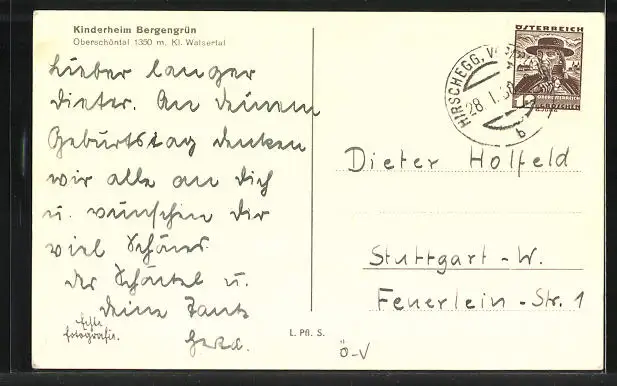 Kinderheim Bergengrün
Oberschöntal 1350 m, Kl. Walsertal
Lieber langer
Dieter. An deinem
Geburtstag denken
wir alle an Dich
u. wünschen dir
viel Schönes.
Der u.
deine Tante
Echte
fotografie.
L. Pfl. S.
ÖSTERREICH
12 GROSCHEN
HIRSCHEGG,
28. I.
b
Dieter Holfeld
Stuttgart - W.
Feuerlein - Str. 1
Ö-V